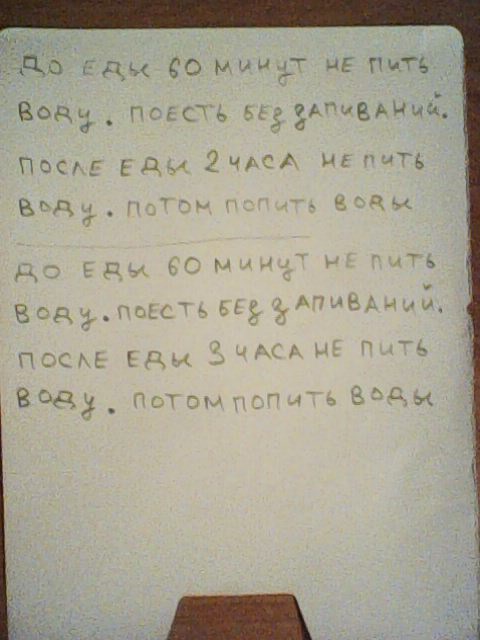 ДО ЕДЫ 60 МИНУТ НЕ ПИТЬ
ВОДУ. ПОЕСТЬ БЕЗ ЗАПИВАНИЙ.
ПОСЛЕ ЕДЫ 2 ЧАСА НЕ ПИТЬ
ВОДУ. ПОТОМ ПОПИТЬ ВОДЫ
ДО ЕДЫ 60 МИНУТ НЕ ПИТЬ
ВОДУ. ПОЕСТЬ БЕЗ ЗАПИВАНИЙ.
ПОСЛЕ ЕДЫ 3 ЧАСА НЕ ПИТЬ
ВОДУ. ПОТОМ ПОПИТЬ ВОДЫ